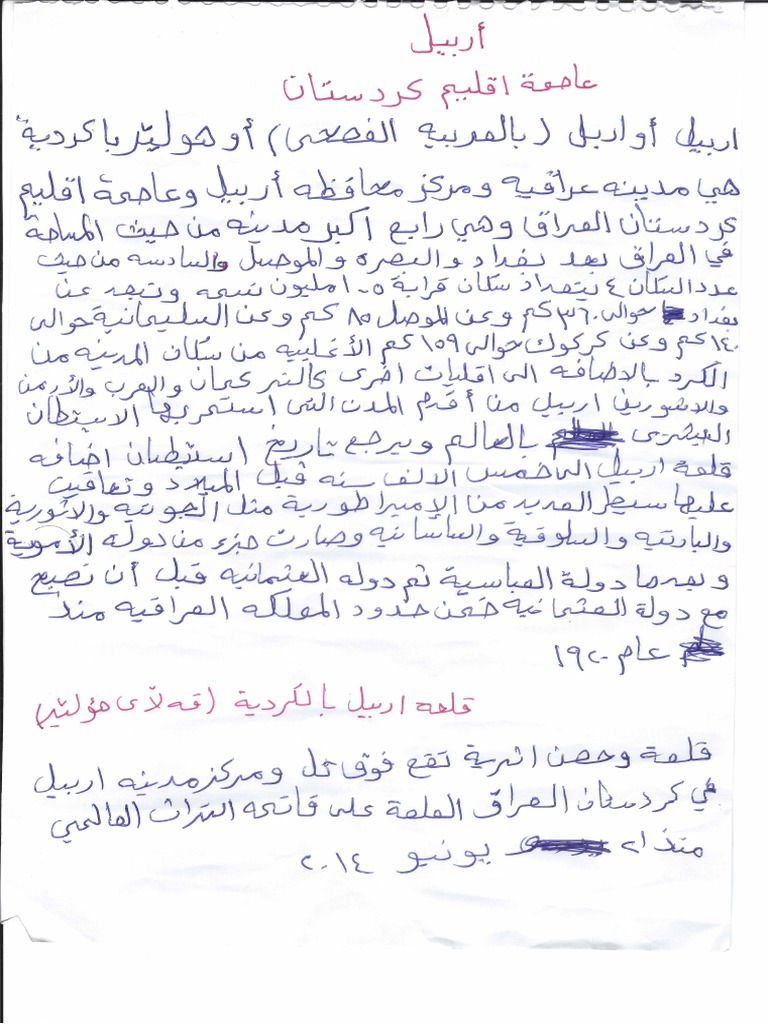 أربيل
عاصمة اقليم كردستان
اربيل أو اربل (بالعربيه الفصحى) أو هولێر باكردية
هي مدينه عراقيه ومركز محافظه أربيل وعاصمة اقليم
كردستان العراق وهي رابع اكبر مدينه من حيث المساحة
في العراق بعد بغداد والبصره والموصل والسادسه من حيث
عدد السكان يتعداد سكان قرابة ١.٥ مليون نسمه وتبعد عن
بغداد حوالى ٣٦٠ كم وعن الموصل ٨٥ كم وعن السليمانية حوالى
١٤٠ كم وعن كركوك حوالى ١٥٩ كم الأغلبيه من سكان المدينه من
الكرد بالاضافه الى اقليات اخرى كالتركمان والعرب والأرمن
والاشورين اربيل من أقدم المدن التى استمر بها الاستطان
البشرى بالعالم ويرجع تاريخ استيطان اضافه
قلعة اربيل الى خمس الالف سنه قبل الميلاد وتعاقب
عليها سيطر العديد من الإمبراطورية مثل الجوتيه والاشورية
والبارتيه والسلوقية والساسانيه وصارت جزء من دولة الأموية
وبعدها دولة العباسية ثم دوله العثمانيه قبل أن تصبح
مع دولة العثمانيه ضمن حدود المملكه العراقيه منذ
عام ١٩٢٠
قلعه اربيل بالكردية (قه لآى هؤلێر)
قلعة وحصن اثرية تقع فوق تل ومركز مدينه اربيل
في كردستان العراق القلعة على قائمه التراث العالمي
منذ ٢١ يونيو ٢٠١٤